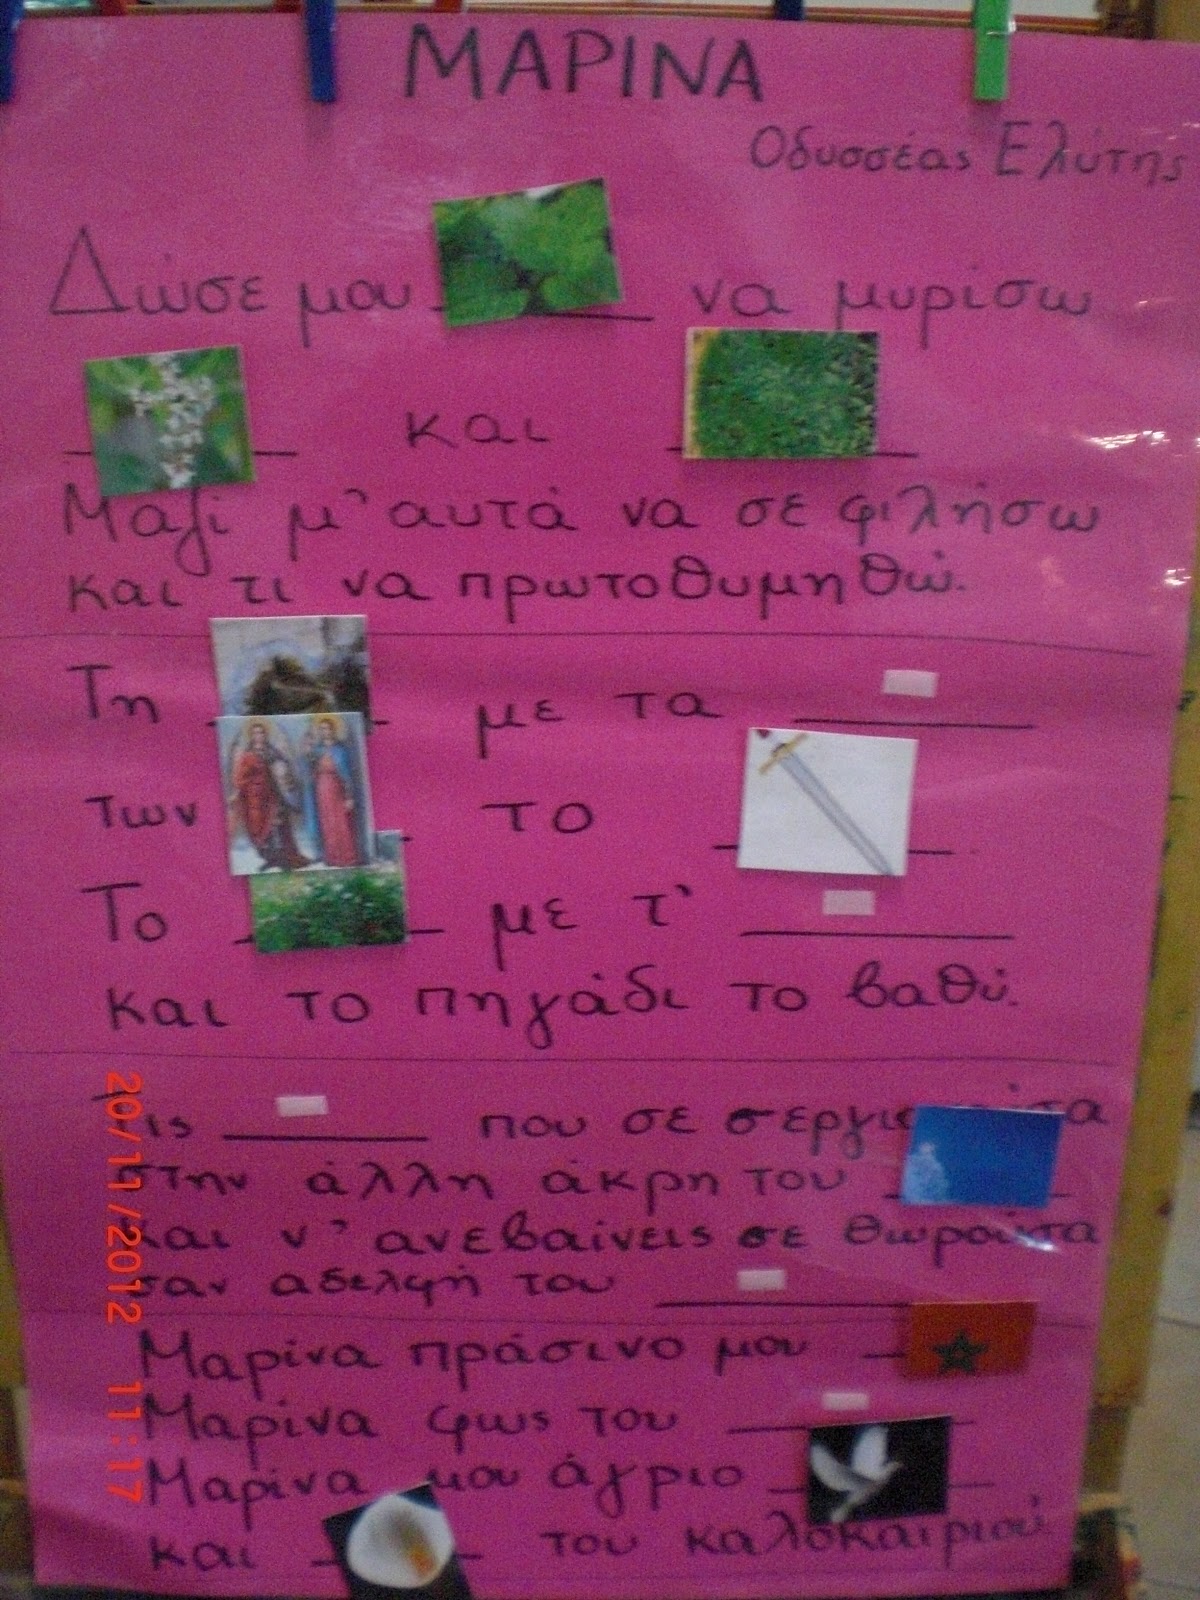 ΜΑΡΙΝΑ
Οδυσσέας Ελύτης
Δώσε μου να μυρίσω
και
Μαζί μ' αυτά να σε φιλήσω
και τι να πρωτοθυμηθώ.
Τη με τα
των το
Το με τ'
και το πηγάδι το βαθύ.
Τις που σε
στην άλλη άκρη του
και ν' ανεβαίνεις σε θωρούσα
σαν αδελφή του
Μαρίνα πράσινο μου
Μαρίνα φως του
Μαρίνα μου άγριο
και του καλοκαιριού
20/11/2012 11:17